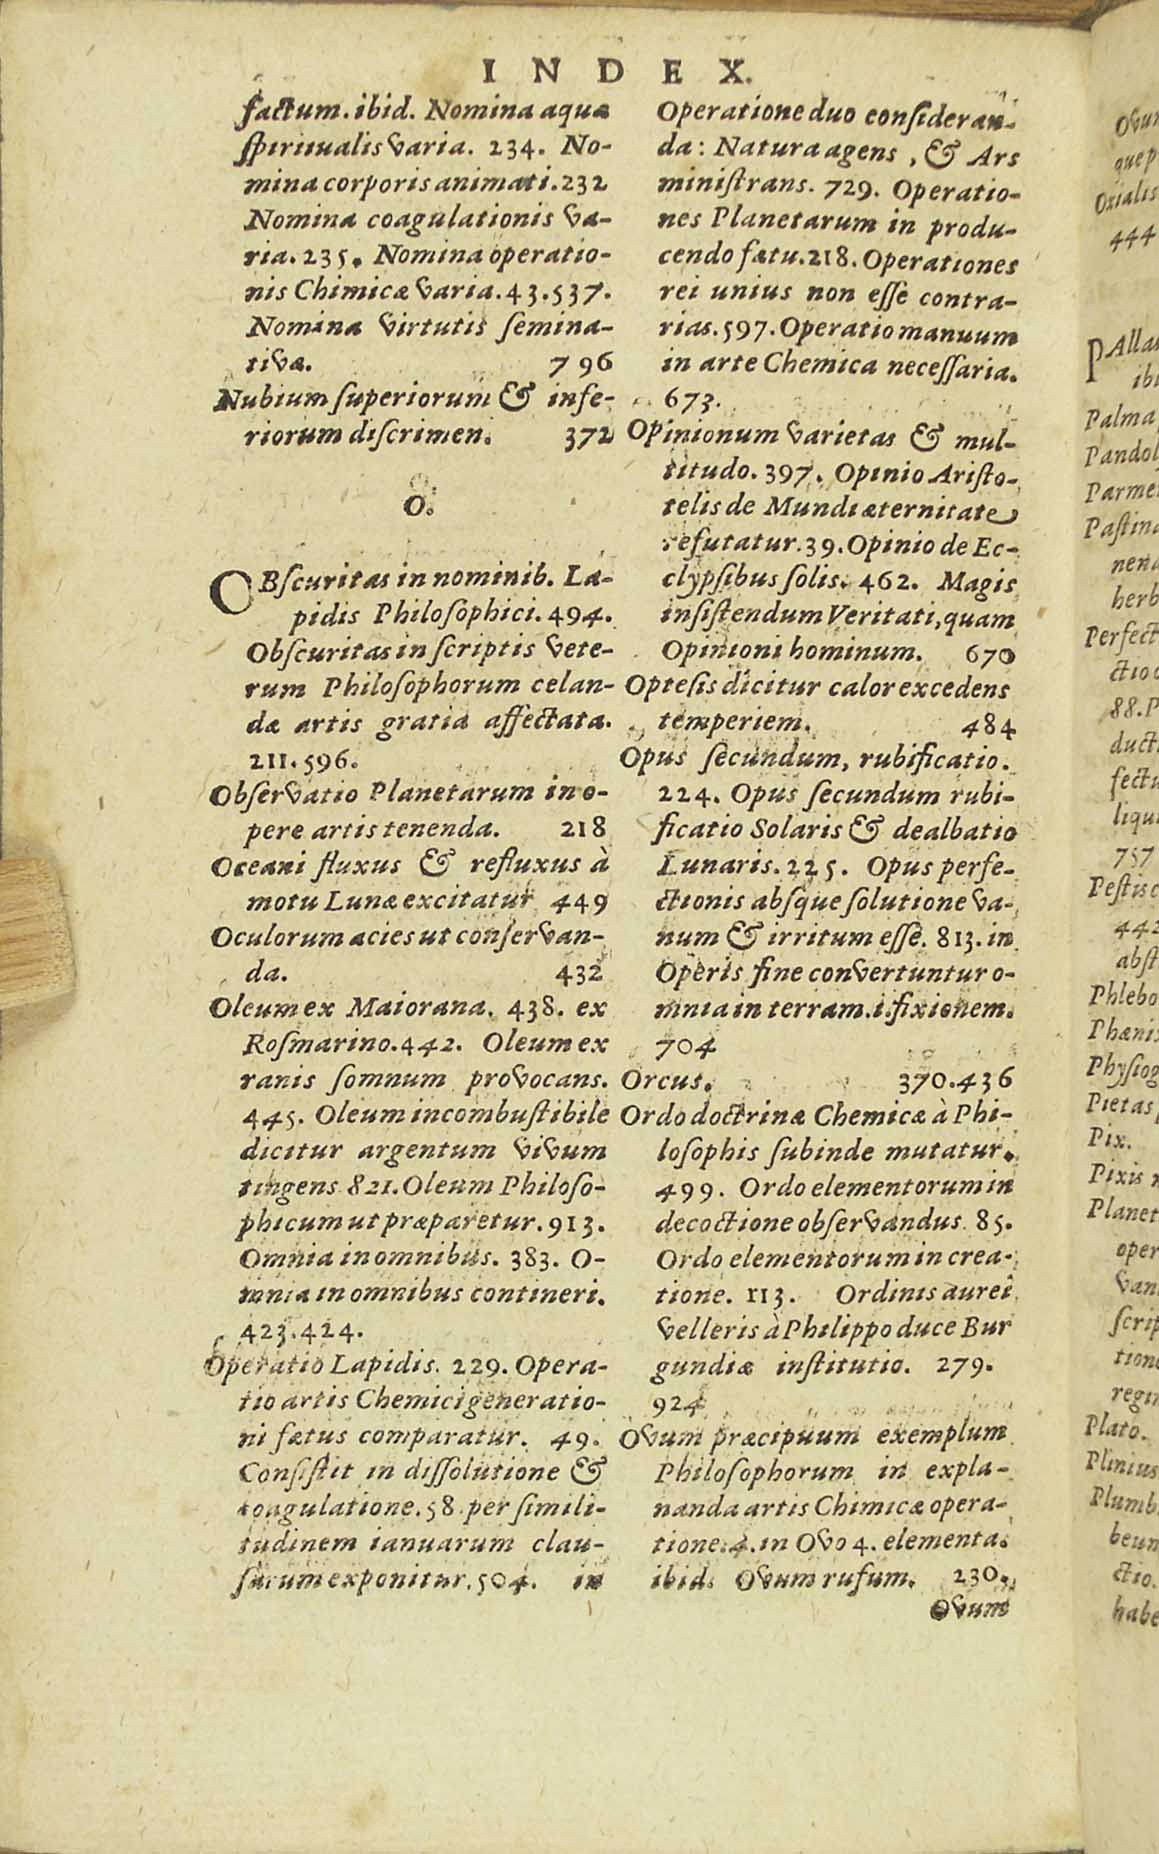 INDEX.
factum. ibid. Nomina aquæ
spiritualis varia. 234. No-
mina corporis animati. 232
Nomina coagulationis va-
ria. 235. Nomina operatio-
nis Chimicæ varia. 43. 537.
Nomina virtutis semina-
tivæ. 796
Nubium superiorum & infe-
riorum discrimen. 372
O.
OBscuritas in nominib. La-
pidis Philosophici. 494.
Obscuritas in scriptis vete-
rum Philosophorum celan-
dæ artis gratia affectata.
211. 596.
Observatio Planetarum in o-
pere artis tenenda. 218
Oceani fluxus & refluxus à
motu Lunæ excitatur 449
Oculorum acies ut conservan-
da. 432
Oleum ex Maiorana. 438. ex
Rosmarino. 442. Oleum ex
ranis somnum provocans.
445. Oleum incombustibile
dicitur argentum vivum
tingens 821. Oleum Philoso-
phicum ut præparetur. 913.
Omnia in omnibus. 383. O-
mnia in omnibus contineri.
423. 424.
Operatio Lapidis. 229. Opera-
tio artis Chemici generatio-
ni fœtus comparatur. 49.
Consistit in dissolutione &
coagulatione. 58. per simili-
tudinem ianuarum clau-
sarum exponitur. 504. in
Operatione duo consideran-
da: Natura agens, & Ars
ministrans. 729. Operatio-
nes Planetarum in produ-
cendo fœtu. 218. Operationes
rei unius non esse contra-
rias. 597. Operatio manuum
in arte Chemica necessaria.
673.
Opinionum varietas & mul-
titudo. 397. Opinio Aristo-
telis de Mundi æternitate
refutatur. 39. Opinio de Ec-
clypsibus solis. 462. Magis
insistendum Veritati, quam
Opinioni hominum. 670
Optesis dicitur calor excedens
temperiem. 484
Opus secundum, rubificatio.
224. Opus secundum rubi-
ficatio Solaris & dealbatio
Lunaris. 225. Opus perfe-
ctionis absque solutione va-
num & irritum esse. 813. in
Operis fine convertuntur o-
mnia in terram. i. fixionem.
704
Orcus. 370. 436
Ordo doctrinæ Chemicæ à Phi-
losophis subinde mutatur.
499. Ordo elementorum in
decoctione observandus 85.
Ordo elementorum in crea-
tione. 113. Ordinis aurei
velleris à Philippo duce Bur
gundiæ institutio. 279.
924
Ovum præcipuum exemplum
Philosophorum in expla-
nanda artis Chimicæ opera-
tione. 4. in Ovo 4. elementa.
ibid. Ovum rufum. 230.
Ovum
que p
Oxialis
444
PAlla
ibi
Palma
Pandol
Parme
Pastina
nena
herb
Perfect
ctio
88. P
duct
fectu
liqu
757
Pestis
442
abst
Phlebo
Phœni
Physiog
Pietas
Pix.
Pixis
Planet
oper
van
scrip
tion
regi
Plato.
Plinius
Plumb
beun
ctio.
habe